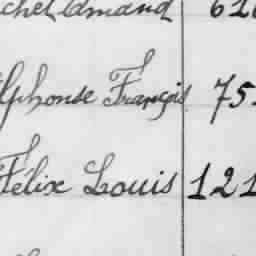 chel Edmond 61
Alphonse François 75
Félix Louis 121